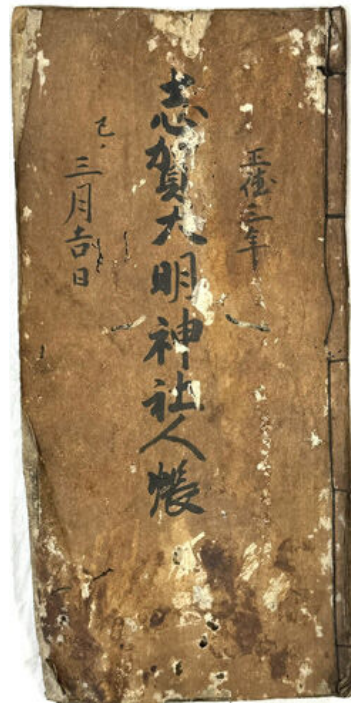 正徳三年
志賀大明神社人帳
巳ノ三月吉日